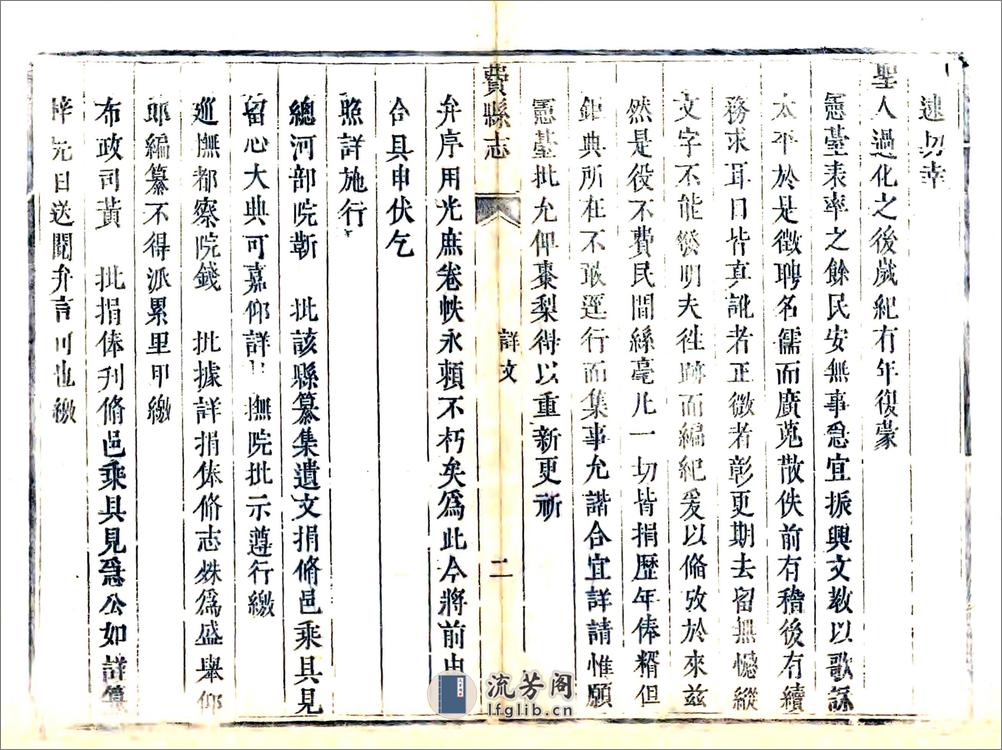 逮切幸
聖人過化之後歲紀有年復蒙
憲臺表率之餘民安無事急宜振興文教以歌詠
太平於是徵聘名儒而廣蒐散佚前有稽後有續
務求耳目皆真訛者正微者彰更期去留無憾縱
文字不能發明夫徃跡而編紀爰以備攷於來茲
然是役不費民間絲毫凡一切皆捐歷年俸糈但
鉅典所在不敢逕行而集事允諧合宜詳請惟願
憲臺批允俾棗梨得以重新更祈
費縣志
詳文
二
弁序用光庶卷帙永賴不朽矣爲此今將前由
合具申伏乞
照詳施行
總河部院靳 批該縣纂集遺文捐脩邑乘具見
留心大典可嘉仰詳 撫院批示遵行繳
巡撫都察院錢 批據詳捐俸脩志殊爲盛舉仰
郎編纂不得派累里甲繳
布政司黃 批捐俸刊脩邑乘具見急公如詳纂
梓完日送閱弁言可也繳
流芳阁
lfglib.cn